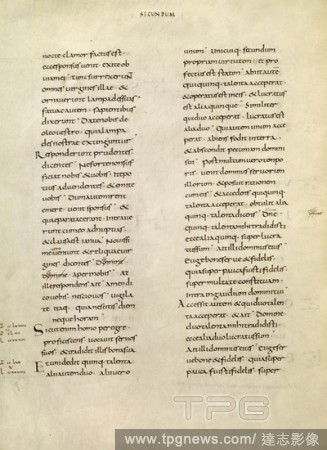 SECUNDUM
nocte clamor factus est
ecce sponsus venit exite ob
viam ei tunc surrexerunt
omnes virgines illae et
ornaverunt lampades suas
fatuae autem sapientibus
dixerunt Date nobis de
oleo vestro quia lampa
des nostrae extinguntur
Responderunt prudentes
dicentes Ne forte non suf
ficiat nobis et vobis ite po
tius ad vendentes et emite
vobis Dum autem irent
emere venit sponsus et
quae paratae erant intrave
runt cum eo ad nuptias
et clausa est ianua Novissi
me veniunt et reliquae vir
gines dicentes Domine
domine aperi nobis At
ille respondens ait amen di
co vobis nescio vos vigila
te itaque quia nescitis diem
neque horam
Sicut enim homo peregre
proficiscens vocavit servos
suos et tradidit illis bona sua
Et uni dedit quinque talenta
alii autem duo alii vero
unum Unicuique secundum
propriam virtutem et pro
fectus est statim abiit autem
qui quinque talenta acceperat
et operatus est in eis et lucratus
est alia quinque Similiter
qui duo acceperat lucratus est
alia duo Qui autem unum acce
perat abiens fodit in terra
et abscondit pecuniam domini
sui Post multum vero tempo
ris venit dominus servorum
illorum et posuit rationem
cum eis et accedens qui quinque
talenta acceperat obtulit alia
quinque talenta dicens Dne
quinque talenta mihi tradidisti
ecce alia quinque superlucra
tus sum Ait illi dominus eius
Euge bone serve et fidelis
quia super pauca fuisti fidelis
super multa te constituam
intra in gaudium domini tui
Accessit autem et qui duo talen
ta acceperat et ait Domine
duo talenta mihi tradidisti
ecce alia duo lucratus sum
Ait illi dominus eius Euge ser
ve bone et fidelis quia super
pauca fuisti fidelis super
TPG
www.tpgnews.com / 達志影像